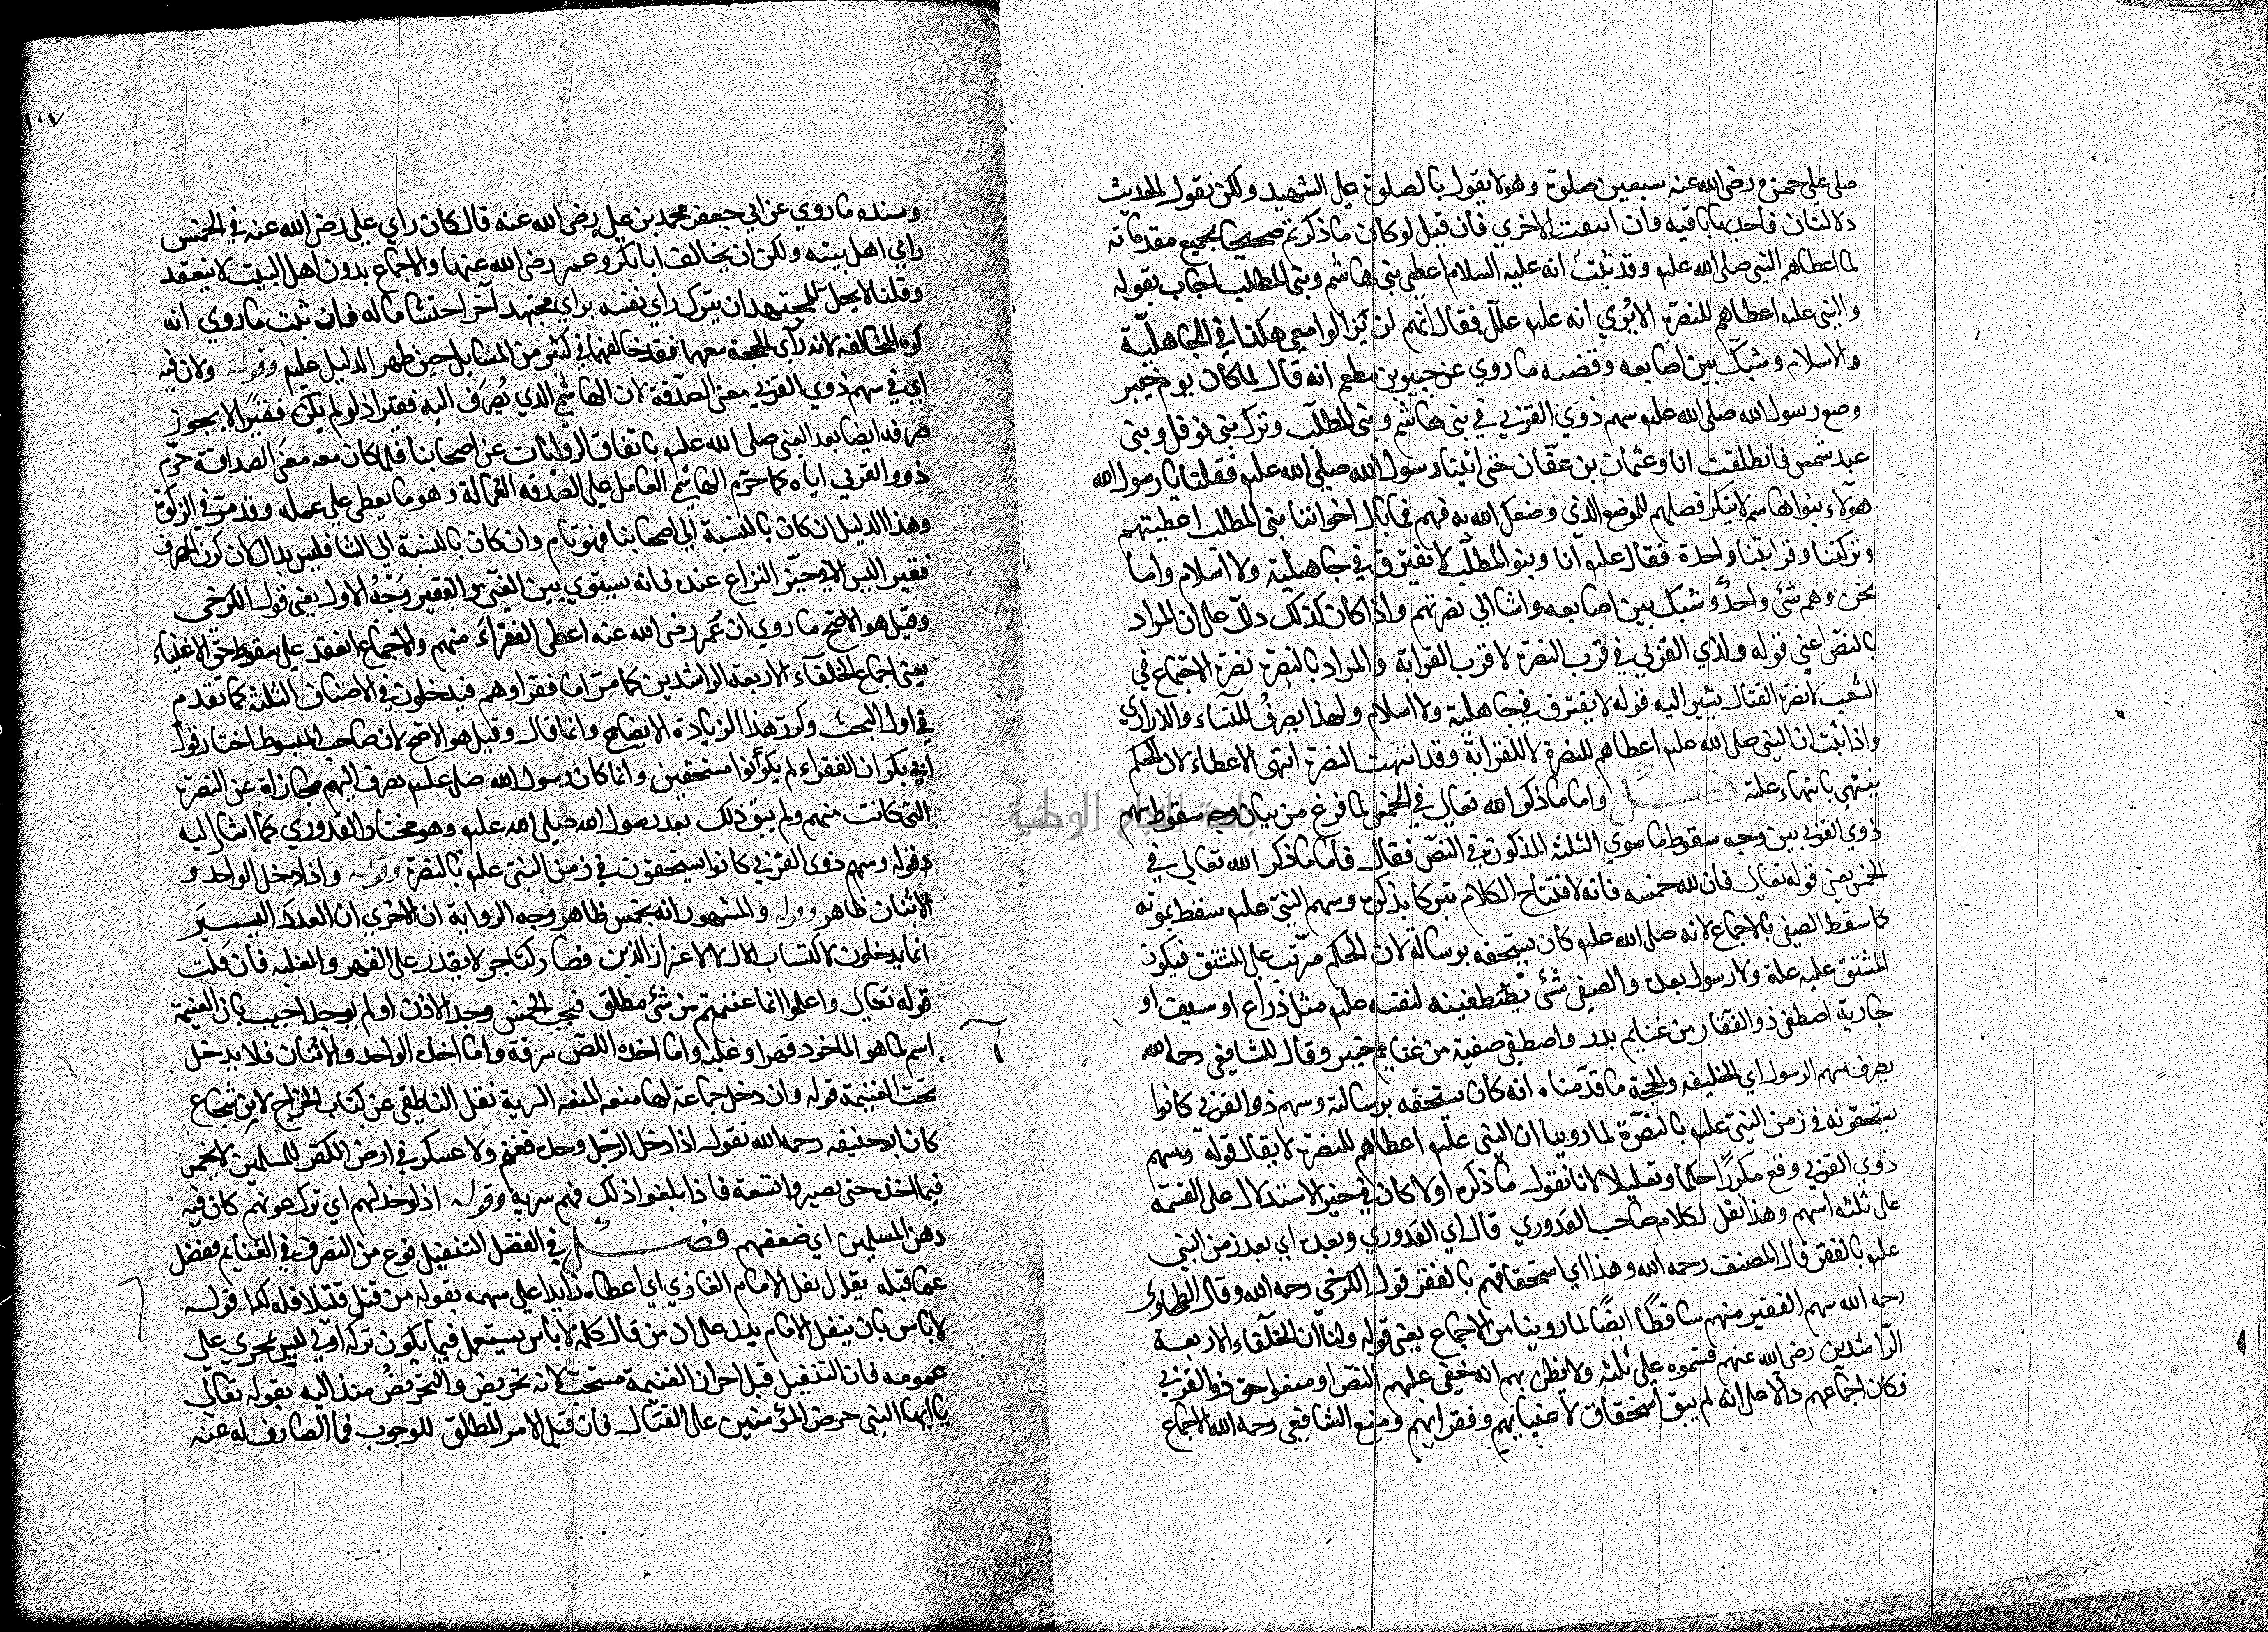 صلى على حمزه رضى الله عنه سبعين صلوة وهو لا يقول بالصلوة على الشهيد ولكن نقول للحديث
دلالتان فاحديهما باقيه وان انتفت الاخرى فان قيل لو كان ما ذكرتم صحيحا بجميع مقدماته
لما اعطاهم النبى صلى الله عليه وقد ثبت انه عليه السلام اعطى بنى هاشم وبنى المطلب اجاب بقوله
والنبى عليه اعطاهم للنصرة الا يرى انه عليه علل فقال انهم لن يزالوا معى هكذا فى الجاهلية
والاسلام وشبك بين اصابعه وقصته ما روى عن جبير بن مطعم انه قال لما كان يوم خيبر
وضع رسول الله صلى الله عليه سهم ذوى القربى فى بنى هاشم وبنى المطلب وترك بنى نوفل وبنى
عبد شمس فانطلقت انا وعثمان بن عفان حتى اتينا رسول الله صلى الله عليه فقلنا يا رسول الله
هولاء بنوا هاشم لا ينكر فضلهم للموضع الذى وضعك الله به فيهم فما بال اخواننا بنى المطلب اعطيتهم
وتركتنا وقرابتنا واحدة فقال عليه انا وبنو المطلب لا نفترق فى جاهلية ولا اسلام وانما
نحن وهم شئ واحد وشبك بين اصابعه واشار الى نصرتهم واذا كان كذلك دل على ان المراد
بالنص اعنى قوله ولذى القربى فى قرب النصرة لا قرب القرابة والمراد بالنصرة نصرة الاجتماع فى
الشعب لا نصرة القتال يشير اليه قوله لا يفترق فى جاهلية ولا اسلام ولهذا يصرف للنساء والذرارى
واذا ثبت ان النبى صلى الله عليه اعطاهم للنصرة لا للقرابة وقد انتهت النصرة انتهى الاعطاء لان الحكم
ينتهى بانتهاء علته فصل واما ما ذكر الله تعالى فى الخمس لما فرغ من بيان وجه سقوط سهم
ذوى القربى بين وجه سقوط ما سوى الثلثه المذكورة فى النص فقال فاما ما ذكر الله تعالى فى
الخمس يعنى قوله تعالى فان لله خمسه فانه لافتتاح الكلام تبركا بذكره وسهم النبى عليه سقط بموته
كما سقط الصفى بالاجماع لانه صلى الله عليه كان يستحقه برسالة لان الحكم مرتب على المشتق فيكون
المشتق عليه علة ولا رسول بعده والصفى شئ يصطفيه لنفسه عليه مثل ذراع او سيف او
جارية اصطفى ذو الفقار من غنايم بدر واصطفى صفية من غنايم خيبر وقال للشافعى رحمه الله
يصرف سهم الرسول الى الخليفة والحجة ما قدمناه انه كان يستحقه برسالته وسهم ذو القربى كانوا
يستحقونه فى زمن النبى عليه بالنصرة لما روينا ان النبى عليه اعطاهم للنصرة لا يقال قوله وسهم
ذوى القربى وقع مكررا حكما وتعليلا لانا نقول ما ذكره اولا كان فى حيز الاستدلال على القسمة
على ثلثه اسهم وهذا نقل لكلام صاحب القدورى قال اى القدورى وبعده اى بعد زمن النبى
عليه بالفقر قال المصنف رحمه الله وهذا اى استحقاقهم بالفقر قول الكرخى رحمه الله وقال الطحاوى
رحمه الله سهم الفقير منهم ساقط ايضا لما روينا من الاجماع يعنى قوله ولنا ان الخلفاء الاربعة
الراشدين رضى الله عنهم قسموه على ثلثه ولا يظن بهم انه خفى عليهم النص او منعوا حق ذوى القربى
فكان اجماعهم دالا على انه لم يبق استحقاق لاغنيايهم وفقرايهم ومنع الشافعى رحمه الله الاجماع
١٠٧
وسنده ما روي عن ابي جعفر محمد بن علي رضى الله عنه قال كان راي علي رضى الله عنه في الخمس
راي اهل بيته ولكن ان يخالف ابا بكر وعمر رضى الله عنهما والاجماع بدون اهل البيت لا ينعقد
وقلنا لا يحل للمجتهد ان يترك راي نفسه براي مجتهد آخر احتشاما له فان ثبت ما روي انه
كره المخالفة لانه راي الحجة معهما فقد خالفهما في كثير من المسايل حين ظهر الدليل عليه وقوله ولان فيه
اي في سهم ذوي القربي معنى الصدقة لان الهاشمي الذي يصرف اليه فقير اذ لو لم يكن فقيرا لا يجوز
صرفه ايضا بعد النبى صلى الله عليه باتفاق الروايات عن اصحابنا فلما كان معه معنى الصداقة حرم
ذوو القربي اياه كما حرم الهاشمي العامل على الصدقه العمالة وهو ما يعطى علي عمله وقد مر في الزكوة
وهذا الدليل ان كان بالنسبة الي اصحابنا فهو تام وان كان بالنسبة الي الشافى فليس بدال لان كون المصرف
فقير اليس الا في حيز النزاع عنده فانه يستوي بين الغنى والفقير وجه الاول يعنى قول الكرخى
وقيل هو الاصح ما روي ان عمر رضى الله عنه اعطى الفقراء منهم والاجماع انعقد علي سقوط حق الاغنياء
يعنى اجماع الخلفاء الاربعة الراشدين كما مر اما فقراوهم فيدخلون في الاصناف الثلثه كما تقدم
في اول البحث وكرر هذا الزيادة الايضاح وانما قال وقيل هو الاصح لان صاحب المبسوط اختار قول
ابي بكر ان الفقراء لم يكونوا مستحقين وانما كان رسول الله صلى عليه يصرف اليهم مجازاة عن النصرة
التى كانت منهم ولم يبق ذلك بعد رسول الله صلى الله عليه وهو مختار القدوري كما اشار اليه
بقوله وسهم ذوى القربي كانوا يستحقون فى زمن النبى عليه بالنصرة وقوله واذا دخل الواحد و
الاثنان ظاهر وقوله والمشهور انه يخمس ظاهر وجه الرواية ان الاخري ان العدد اليسير
انما يدخلون لاكتساب المال لا لاعزاز الدين فصار كتاجر لا يقدر على القهر والغلبه فان قلت
قوله تعالى واعلموا انما غنمتم من شئ مطلق فيجب الخمس وجد الاذن او لم يوجد اجيب بان الغنيمة
اسم لما هو الماخوذ قهرا وغلبه واما اخذه اللص سرقة واما اخذه الواحد والاثنان فلا يدخل
تحت الغنيمة قوله وان دخل جماعة لها منعه المنعه السرية نقل الناطقى عن كتاب الخراج لابن شجاع
كان ابو حنيفه رحمه الله تقول اذا دخل الرجل وحده فغنم ولا عسكر في ارض الكفر للمسلمين لا يخمس
فيما اخذه حتى يصيروا تسعة فاذا بلغوا ذلك فهم سرية وقوله اذ لو خذلهم اي ترك عونهم كان فيه
وهن المسلمين اي ضعفهم فصل في الفضل التنفيل نوع من التصرف في الغنايم ففصل
عما قبله يقال نفل الامام الغازي اي اعطاه زايدا علي سهمه بقوله من قتل قتيلا فله كذا قوله
لا باس بان ينفل الامام يدل على ان من قال كلمة لا باس يستعمل فيما يكون تركه اولي ليس بمجري على
عمومه فان التنفيل قبل احراز الغنيمة مستحب لانه تحريض والتحريض مندوب اليه بقوله تعالى
يا ايها النبى حرض المؤمنين على القتال فان قيل الامر المطلق للوجوب فما الصارف له عنه
جامعة الملك الوطنية